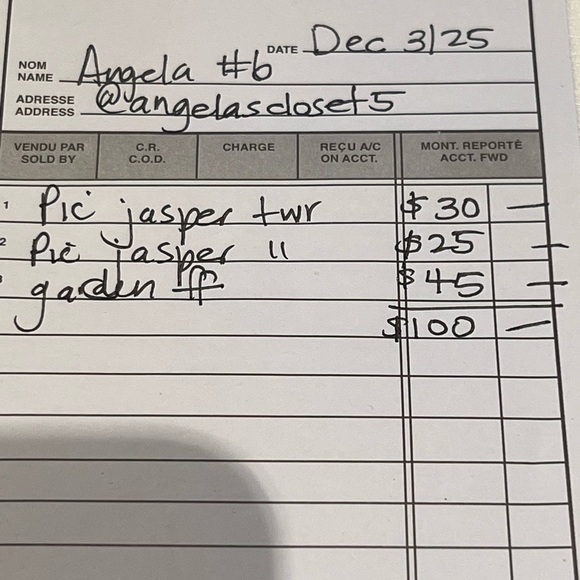 DATE Dec 3/25
NOM
NAME Angela #6
ADRESSE
ADDRESS @angelascloset5
VENDU PAR
SOLD BY
C.R.
C.O.D.
CHARGE
REÇU A/C
ON ACCT.
MONT. REPORTÉ
ACCT. FWD
1 Pic jasper twr $30 —
2 Pic jasper " $25 —
garden ff $45 —
$100 —